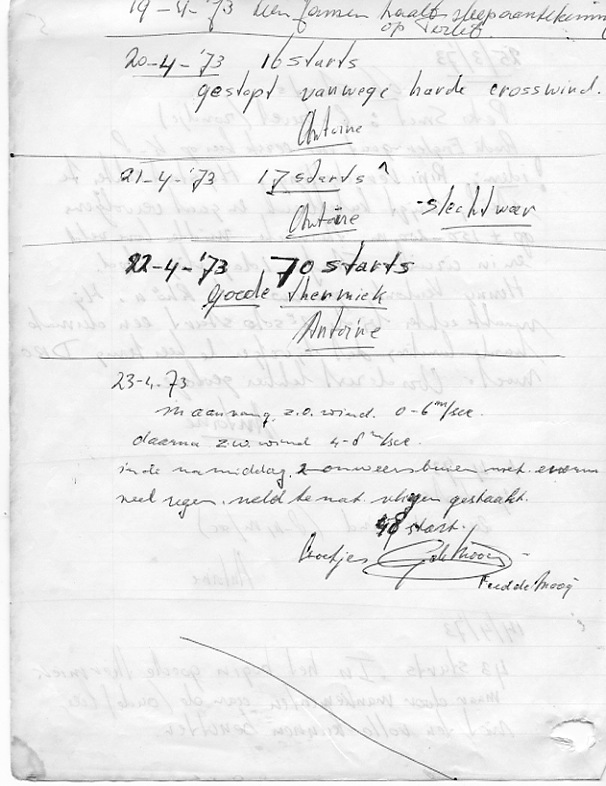 19-4-'73 Jansen haalt sleepaantekening
op
20-4-'73 16 starts
gestopt vanwege harde crosswind.
Antoine
21-4-'73 17 starts
Antoine - slecht weer
22-4-'73 70 starts
goede thermiek
Antoine
23-4-73
in aanvang z.o. wind. 0-6 m/sec.
daarna z.w. wind 4-8 m/sec.
in de namiddag 2 onweersbuien met enorm
veel regen. veld te nat. vliegen gestaakt.
48 start.
Groetjes